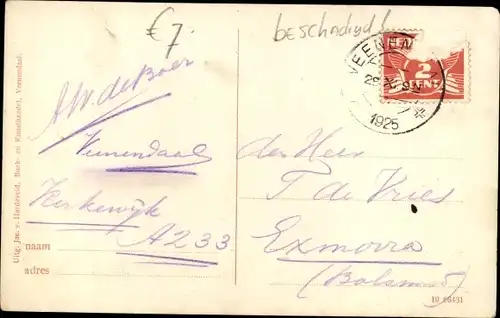 € 7.
beschadigd!
VEENENDAAL
1925
2
CENT
A.W. de Boer
Veenendaal
Kerkewijk
A 233
naam
adres
den Heer
T de Vries
Exmorra
(Bolsward)
Uitg. Jac. v. Hardeveld, Boek- en Kunsthandel, Veenendaal.